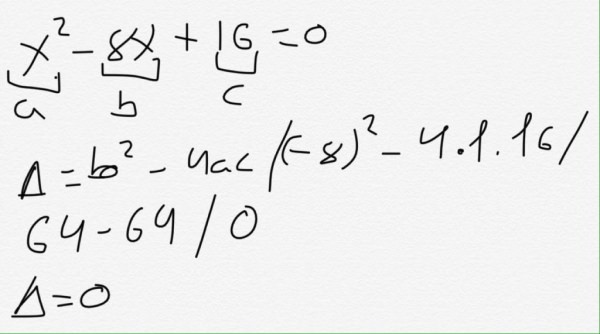 x² - 8x + 16 = 0
a b c
Δ = b² - 4ac / (-8)² - 4.1.16 /
64 - 64 / 0
Δ = 0